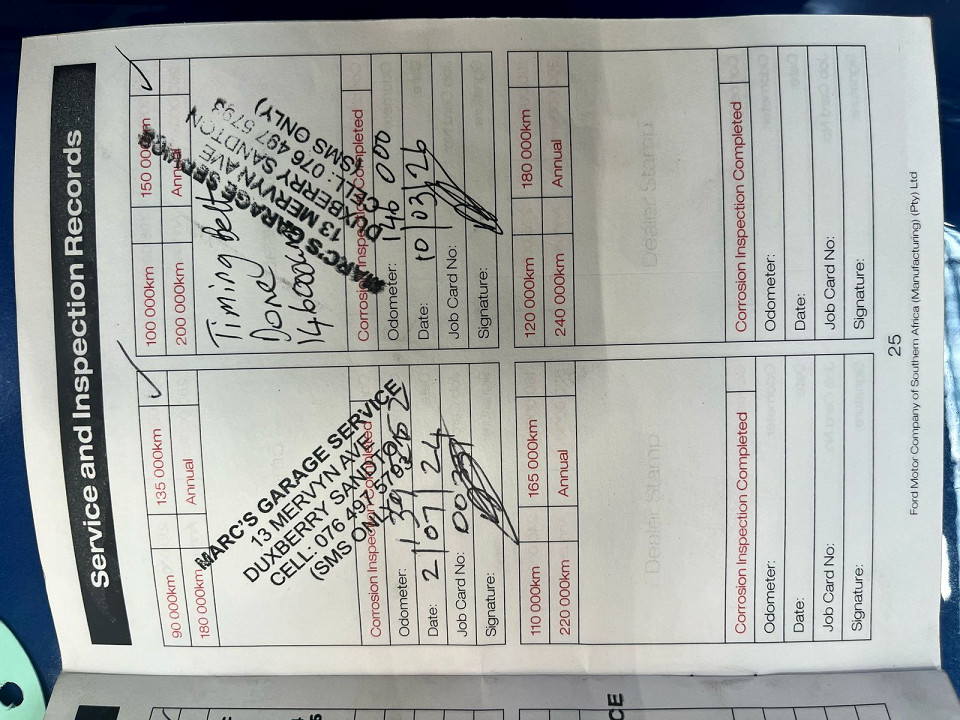 Service and Inspection Records
90 000km
135 000km
180 000km
Annual
MARC'S GARAGE SERVICE
13 MERVYN AVE
DUXBERRY SANDTON
CELL: 076 497 5793
(SMS ONLY)
Corrosion Inspection Completed
Odometer:
Date: 2/07/24
Job Card No:
Signature:
100 000km
150 000km
200 000km
Annual
Timing Belt
Done
MARC'S GARAGE SERVICE
13 MERVYN AVE
DUXBERRY SANDTON
CELL: 076 497 5793
(SMS ONLY)
Corrosion Inspection Completed
Odometer: 146 000
Date: 10/03/26
Job Card No:
Signature:
110 000km
165 000km
220 000km
Annual
Dealer Stamp
Corrosion Inspection Completed
Odometer:
Date:
Job Card No:
Signature:
120 000km
180 000km
240 000km
Annual
Dealer Stamp
Corrosion Inspection Completed
Odometer:
Date:
Job Card No:
Signature:
25
Ford Motor Company of Southern Africa (Manufacturing) (Pty) Ltd